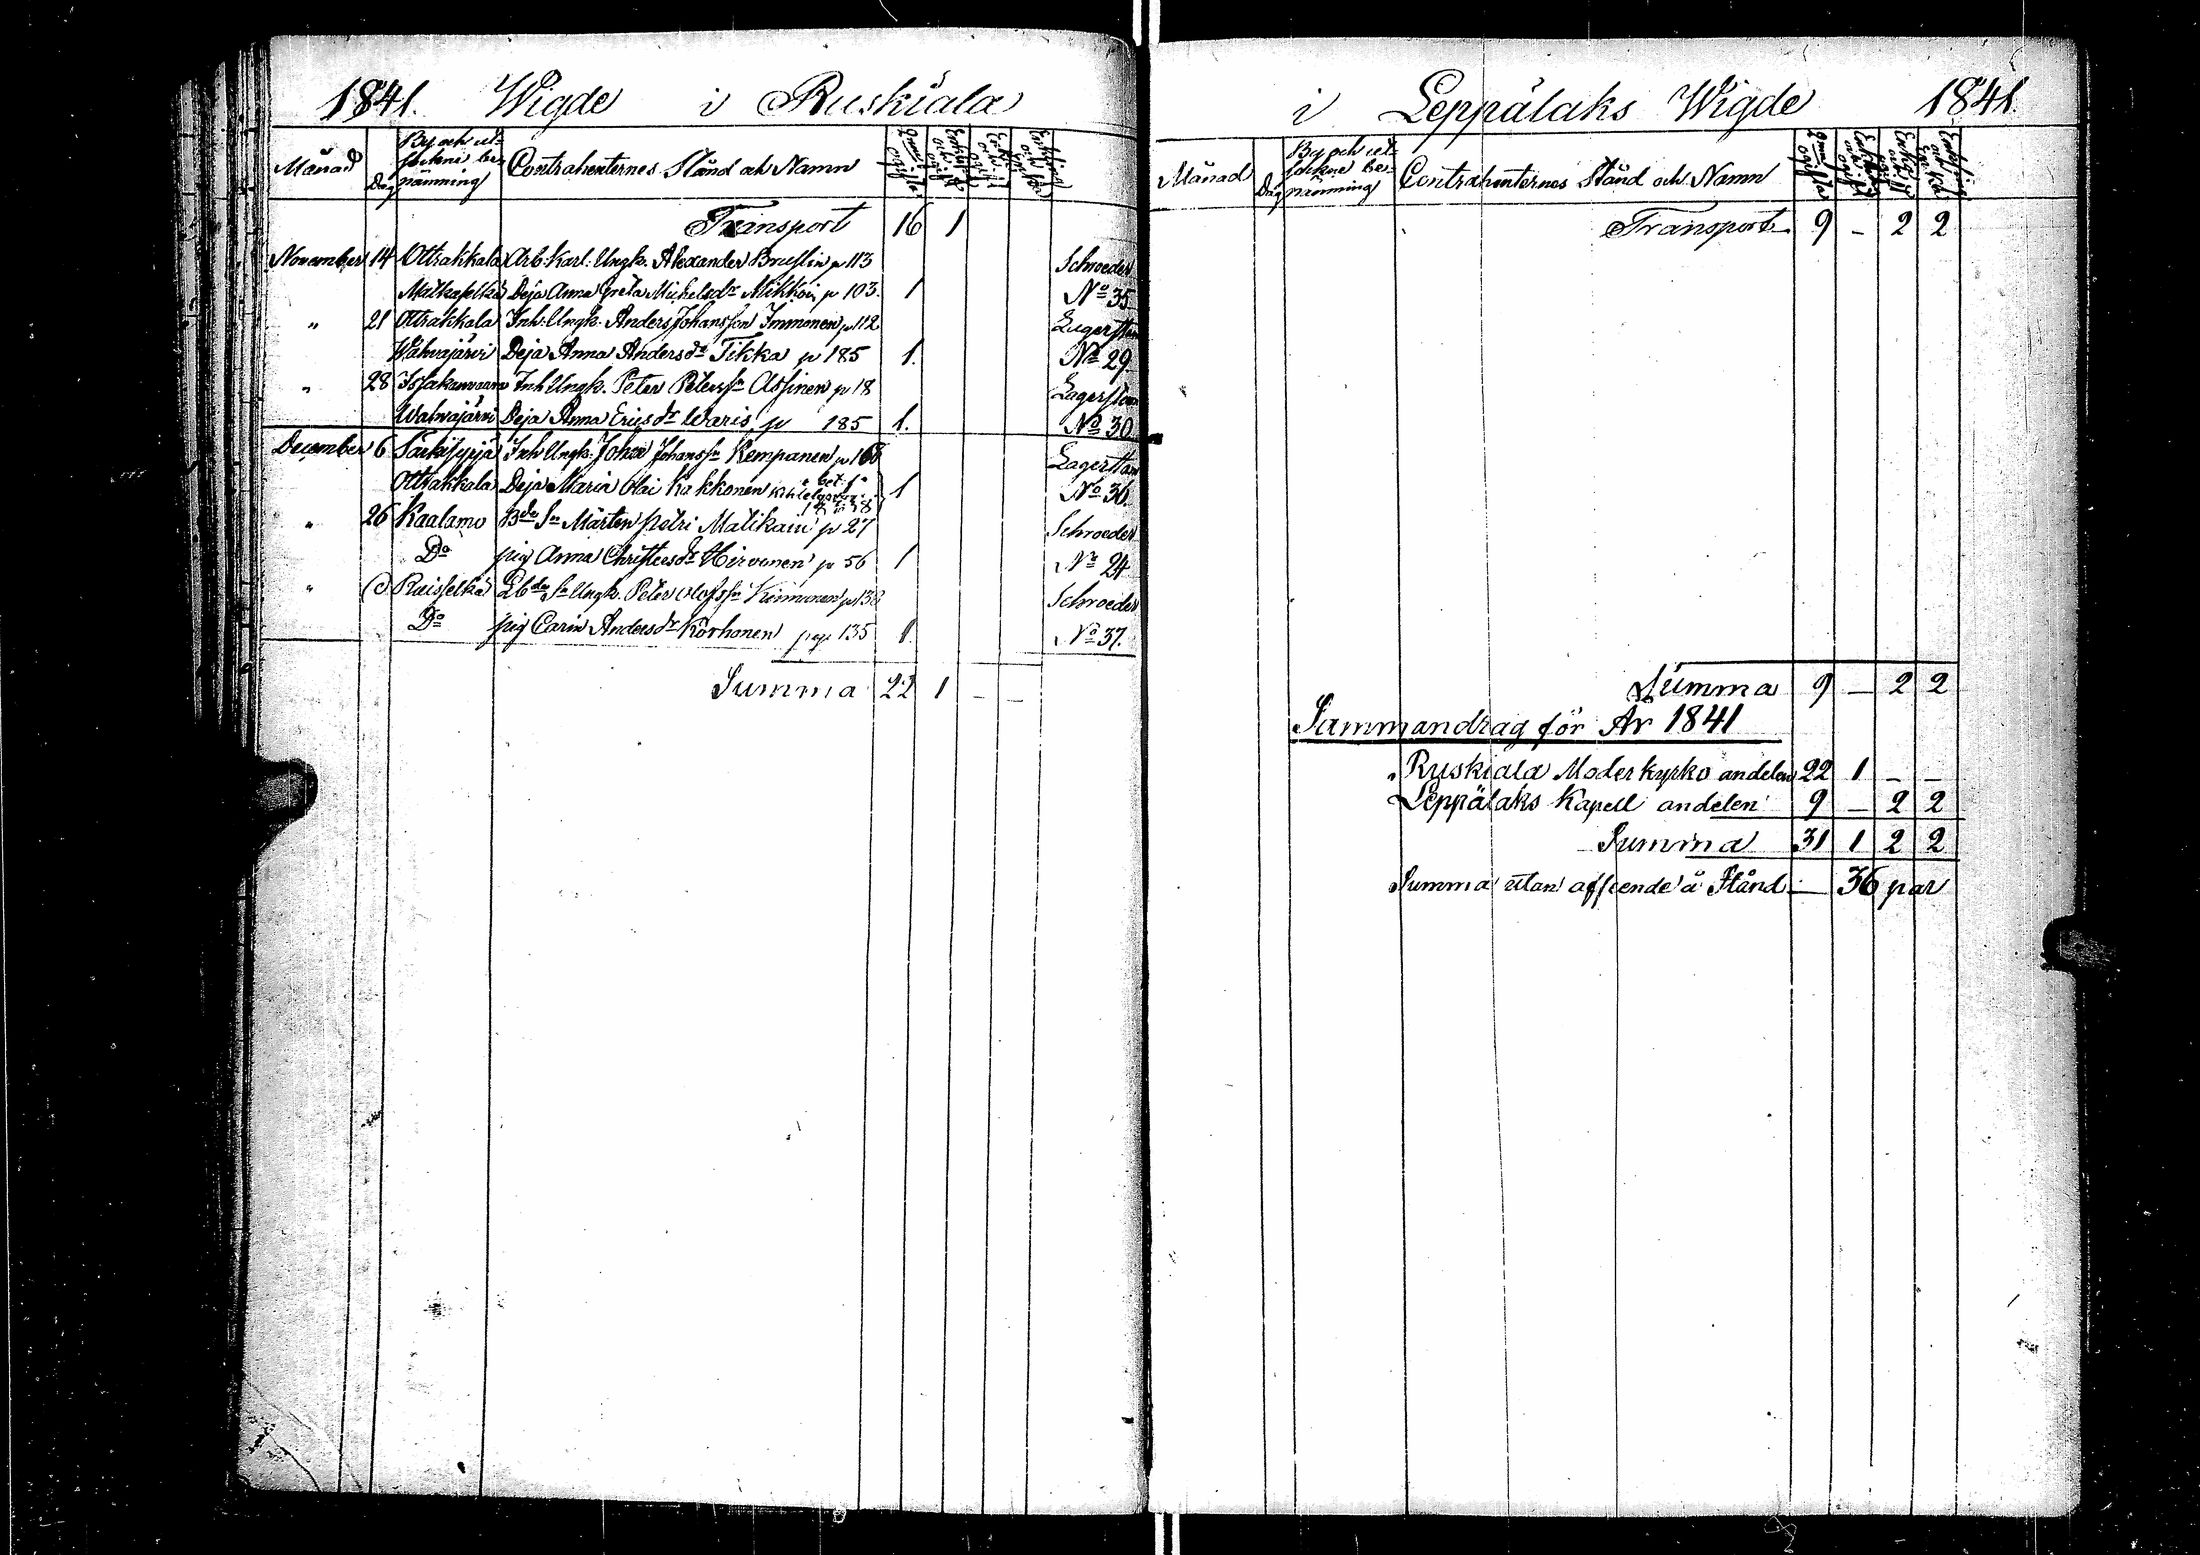 1841. Wigde i Ruskiala
Månad Dag By och ut- sockne be- nämning Contrahenternes Stånd och Namn
Transport 16 1
November 14 Ottrakkala Arb. Karl. Ungk. Alexander Bruslin p 113 Schroeder
Matkaselkä Deja Anna Greta Michelsdr Mikkoin p 103. 1 No 35
" 21 Ottrakkala Inh. Ungk. Anders Johansson Immonen p 112 Lagerstam
Wahvajärvi Deja Anna Andersdr Tikka p 185 1. No 29.
" 28 Inh Ungk. Peter Peterssn Assinen p 18 Lagerstam
Wahvajärvi Deja Anna Ericsdr Waris p 185 1. No 30
December 6 Särkisyrjä Inh Ungk. Johan Johanssn Kempanen p 168 Lagerstam
Ottrakkala Deja Maria Olai Kakkonen 1 No 36.
" 26 Kaalamo Bde Sn Mårten Petri Matikain p 27 Schroeder
Do pig Anna Christersdr Hirvonen p 56 1 No 24
" Ruisselkä Lbdes Sn Ungk. Peter Olofssn Kinnunen p 138 Schroeder
Do pig Carin Andersdr Korhonen pag 135 1. No 37.
Summa 22 1 – –
i Leppälaks Wigde 1841.
Månad Dag By och ut- sockne be- nämning Contrahenternes Stånd och Namn
Transport 9 – 2 2
Summa 9 – 2 2
Sammandrag för År 1841
Ruskiala Moderkyrko andelen 22 1 – –
Leppälaks Kapell andelen 9 – 2 2
Summa 31 1 2 2
Summa utan afseende å Stånd – 36 par